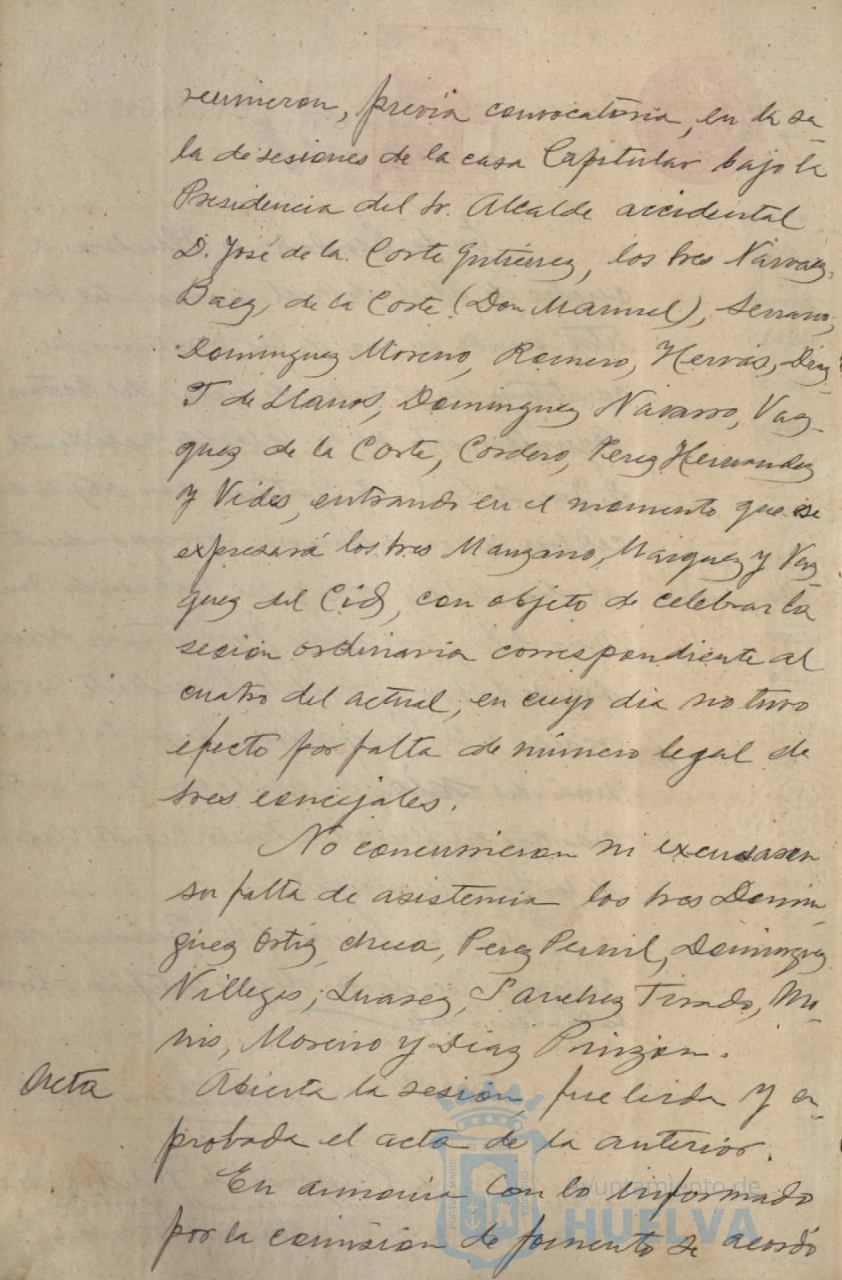 reunieron, previa convocatoria, en la sa-
la de sesiones de la casa Capitular bajo la
Presidencia del Sr. Alcalde accidental
D. José de la Corte Gutierrez, los Sres Narvaez,
Baez, de la Corte (Don Manuel), Serrano,
Dominguez Moreno, Romero, Hervás, Diaz
T de Llanos, Dominguez Navarro, Vaz-
quez de la Corte, Cordero, Perez Hernandez
y Vides, entrando en el momento que se
expresará los Sres Manzano, Marquez y Vaz-
quez del Cid, con objeto de celebrar la
sesión ordinaria correspondiente al
cuatro del actual, en cuyo dia no tuvo
efecto por falta de número legal de
Sres concejales.
No concurrieron ni excusaron
su falta de asistencia los Sres Domin-
guez Ortiz, checa, Perez Pernil, Dominguez
Villegas, Suarez, Sanchez Tirado, Mo-
nis, Moreno y Diaz Pinzon.
Acta Abierta la sesión, fue leida y a-
probada el acta de la anterior.
En armonia con lo informado
por la comisión de fomento se acordó
Ayuntamiento de
HUELVA